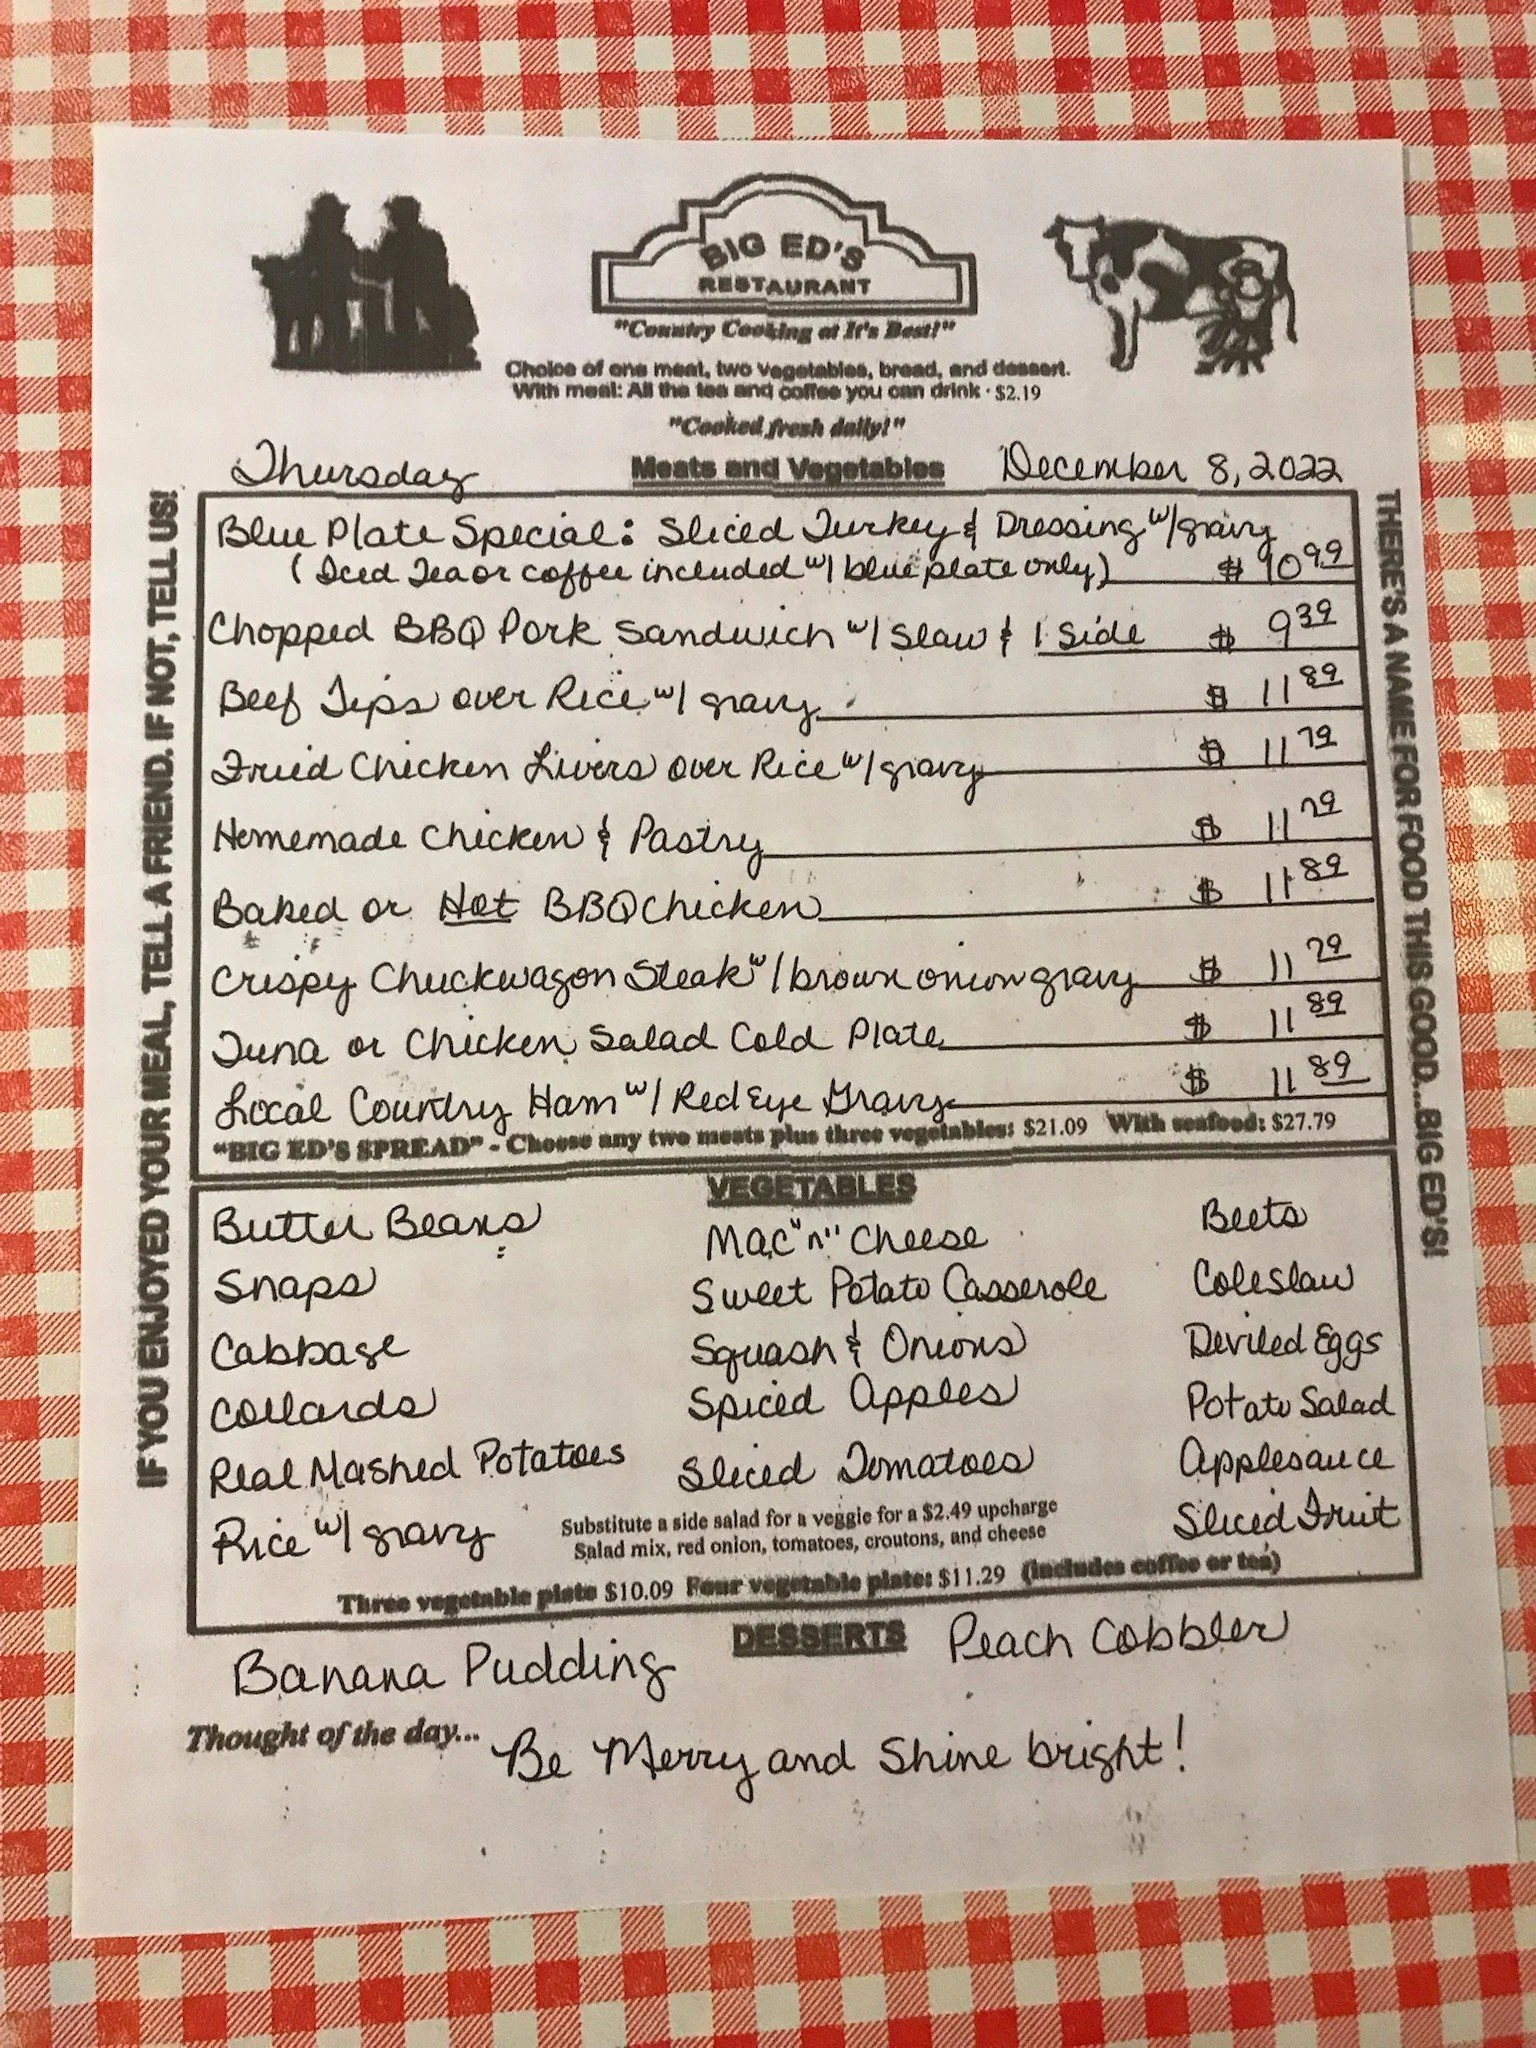 BIG ED'S
RESTAURANT
"Country Cooking at It's Best!"
Choice of one meat, two vegetables, bread, and dessert.
With meal: All the tea and coffee you can drink · $2.19
"Cooked fresh daily!"
Thursday Meats and Vegetables December 8, 2022
IF YOU ENJOYED YOUR MEAL, TELL A FRIEND. IF NOT, TELL US!
Blue Plate Special: Sliced Turkey & Dressing w/gravy
(Iced Tea or coffee included w/ blue plate only) $ 10.99
Chopped BBQ Pork Sandwich w/ Slaw & 1 Side $ 9.39
Beef Tips over Rice w/ gravy $ 11.89
Fried Chicken Livers over Rice w/gravy $ 11.79
Homemade Chicken & Pastry $ 11.79
Baked or Hot BBQ Chicken $ 11.89
Crispy Chuckwagon Steak w/brown onion gravy $ 11.79
Tuna or Chicken Salad Cold Plate $ 11.89
Local Country Ham w/ Red Eye Gravy $ 11.89
"BIG ED'S SPREAD" - Choose any two meats plus three vegetables: $21.09 With seafood: $27.79
THERE'S A NAME FOR FOOD THIS GOOD...BIG ED'S!
VEGETABLES
Butter Beans Mac "n" Cheese Beets
Snaps Sweet Potato Casserole Coleslaw
Cabbage Squash & Onions Deviled Eggs
Collards Spiced Apples Potato Salad
Real Mashed Potatoes Sliced Tomatoes Applesauce
Rice w/ gravy Substitute a side salad for a veggie for a $2.49 upcharge Sliced Fruit
Salad mix, red onion, tomatoes, croutons, and cheese
Three vegetable plate $10.09 Four vegetable plate: $11.29 (includes coffee or tea)
DESSERTS
Banana Pudding Peach Cobbler
Thought of the day... Be Merry and Shine bright!